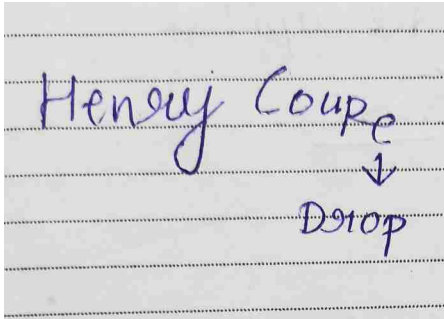 Henry Coupe
↓
Drop